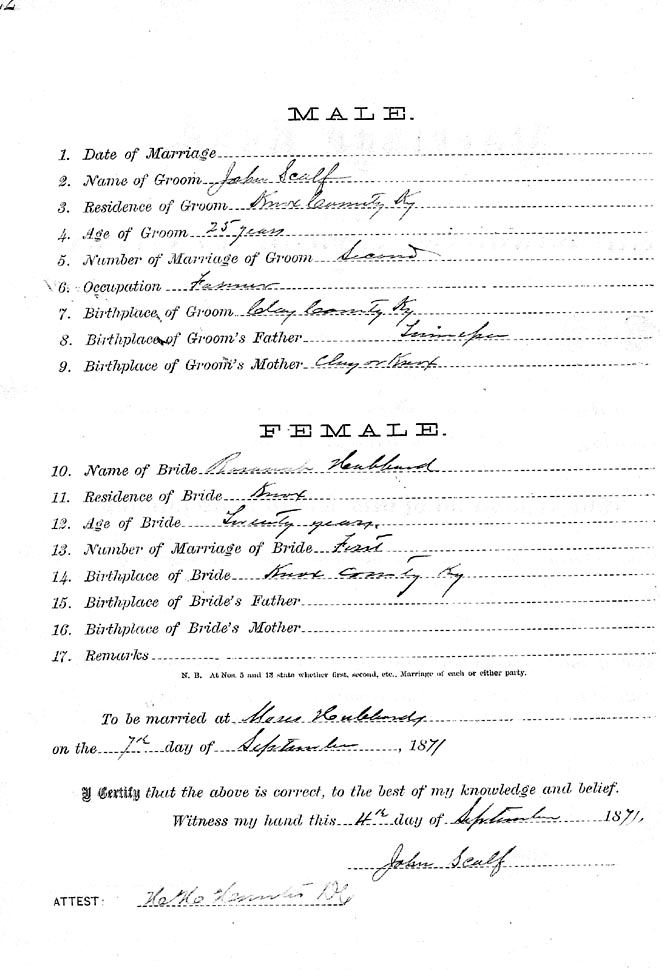 MALE.
1. Date of Marriage
2. Name of Groom John Scalf
3. Residence of Groom Knox County Ky
4. Age of Groom 25 years
5. Number of Marriage of Groom Second
6. Occupation Farmer
7. Birthplace of Groom Clay County Ky
8. Birthplace of Groom's Father
9. Birthplace of Groom's Mother Clay or Knox
FEMALE.
10. Name of Bride Hubbard
11. Residence of Bride Knox
12. Age of Bride Twenty years.
13. Number of Marriage of Bride First
14. Birthplace of Bride Knox County Ky
15. Birthplace of Bride's Father
16. Birthplace of Bride's Mother
17. Remarks
N. B. At Nos. 5 and 13 state whether first, second, etc., Marriage of each or either party.
To be married at Hubbards
on the 7th day of September, 1871
I Certify that the above is correct, to the best of my knowledge and belief.
Witness my hand this 4th day of September 1871.
John Scalf
ATTEST: